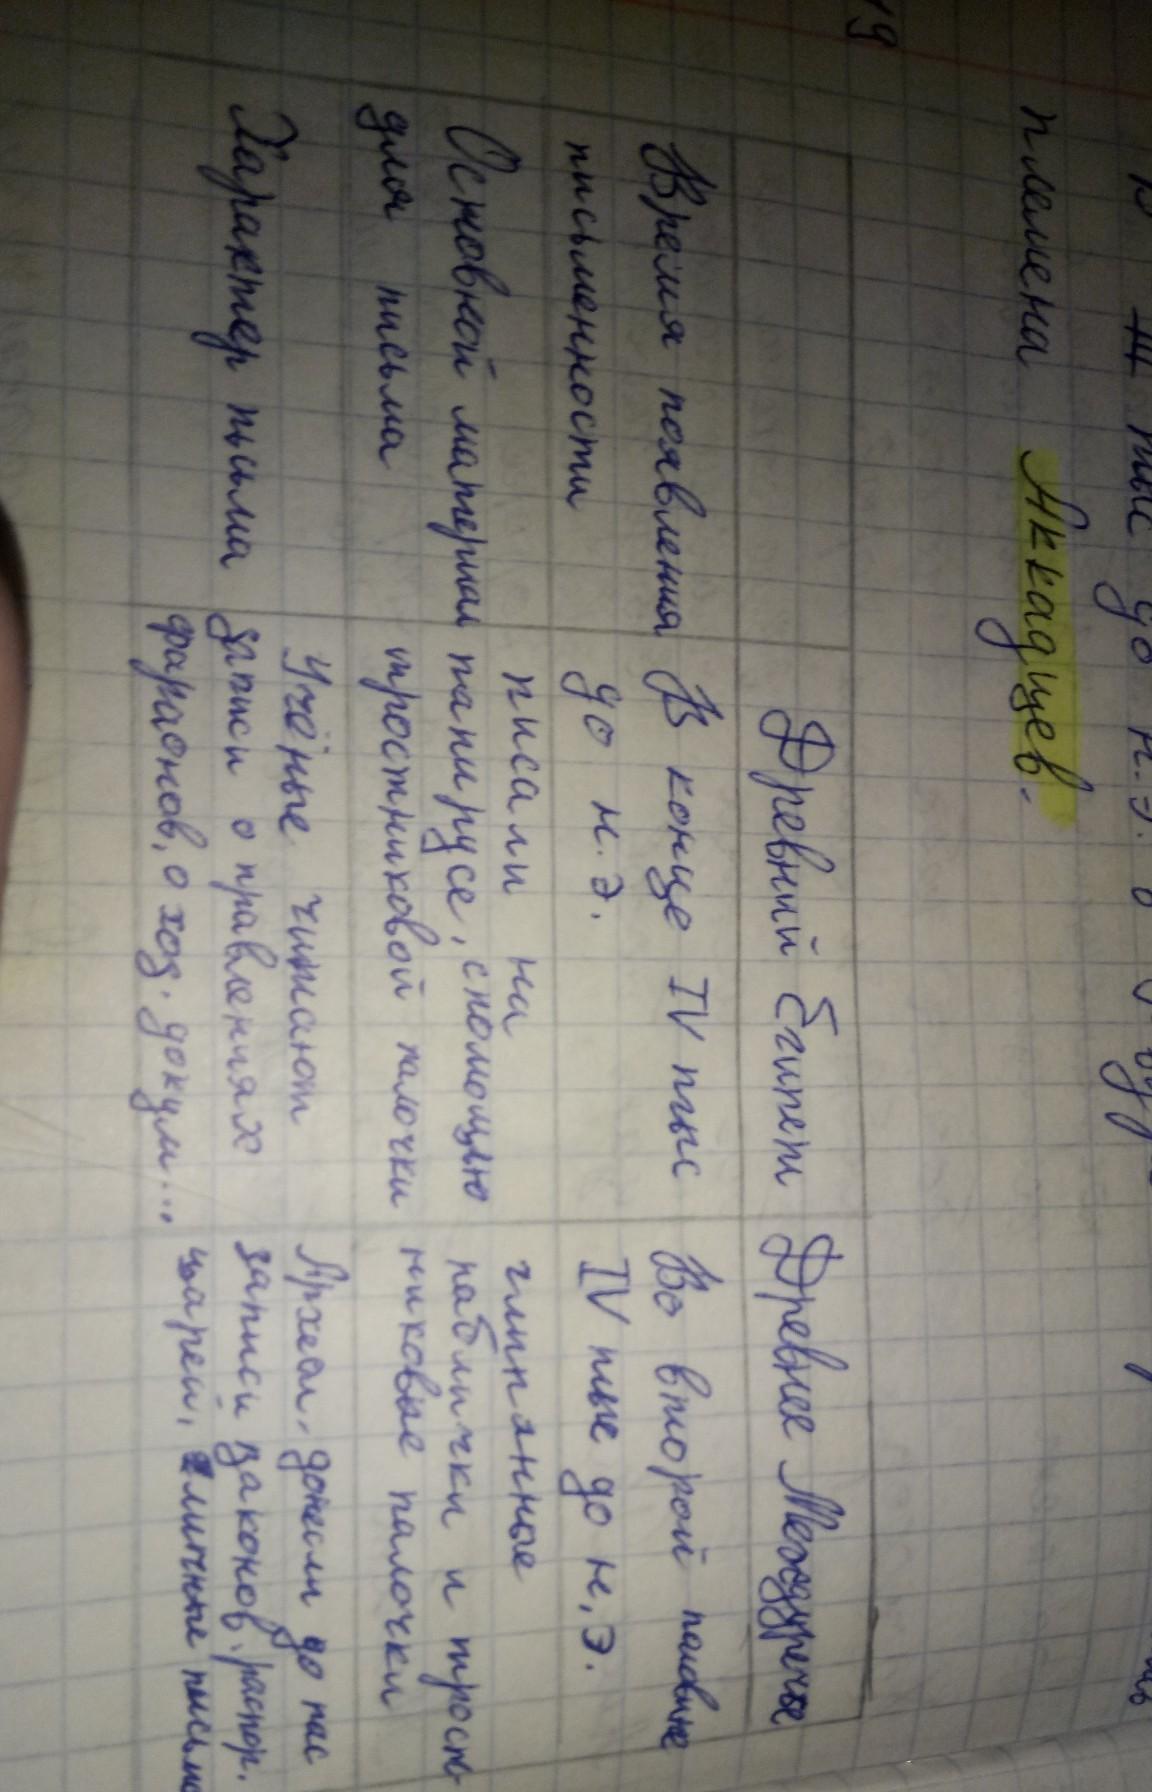 19
тыс до н.э. в
племена Аккадцев.
Древний Египет
Древнее Междуречье
Время появления
письменности
В конце IV тыс
до н.э.
Во второй половине
IV тыс до н,э.
Основной материал
для письма
писали на
папирусе, спомощью
тростниковой палочки
глиняные
таблички и трост-
никовые палочки
Характер пьсьма
Учёные читают
записи о правлениях
фараонов, о ход. докум...
Археол. донесли до нас
записи законов. распор.
царей, личные письма